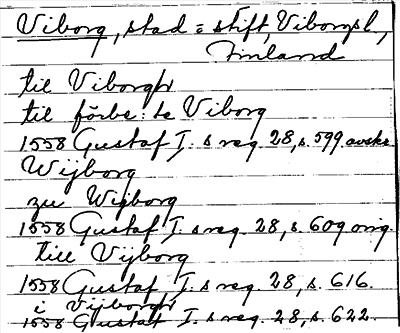 Viborg, stad = stift, Viborgsl,
Finland
till Viborgh
till förbe:te Viborg
1558 Gustaf I.s reg. 28, s. 599 avskr
Wijborg
zu Wijborg
1558 Gustaf I.s reg. 28, s. 609 orig.
till Vijborg
1558 Gustaf I.s reg. 28, s. 616.
i Vijborgh
1558 Gustaf I.s reg. 28, s. 622.